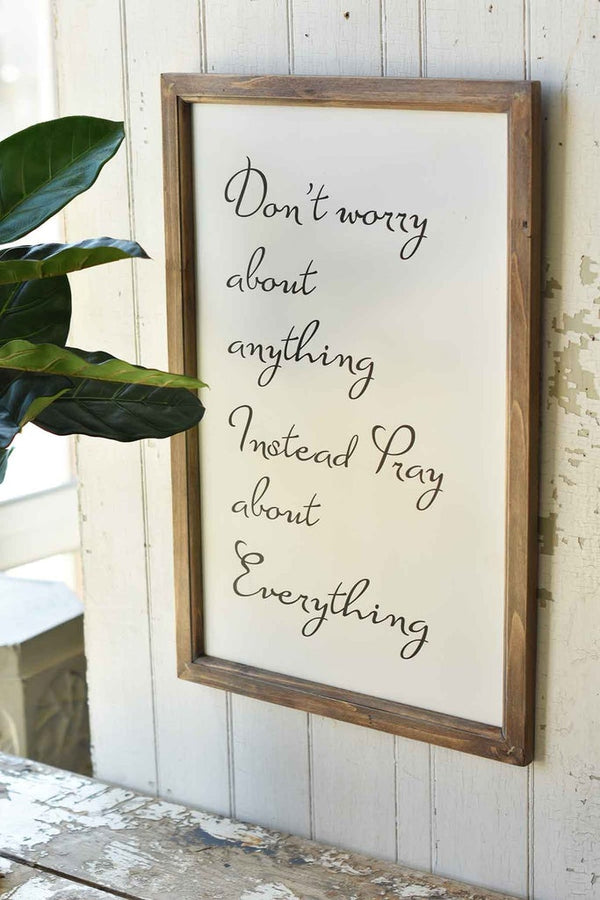 Don't worry
about
anything
Instead Pray
about
Everything